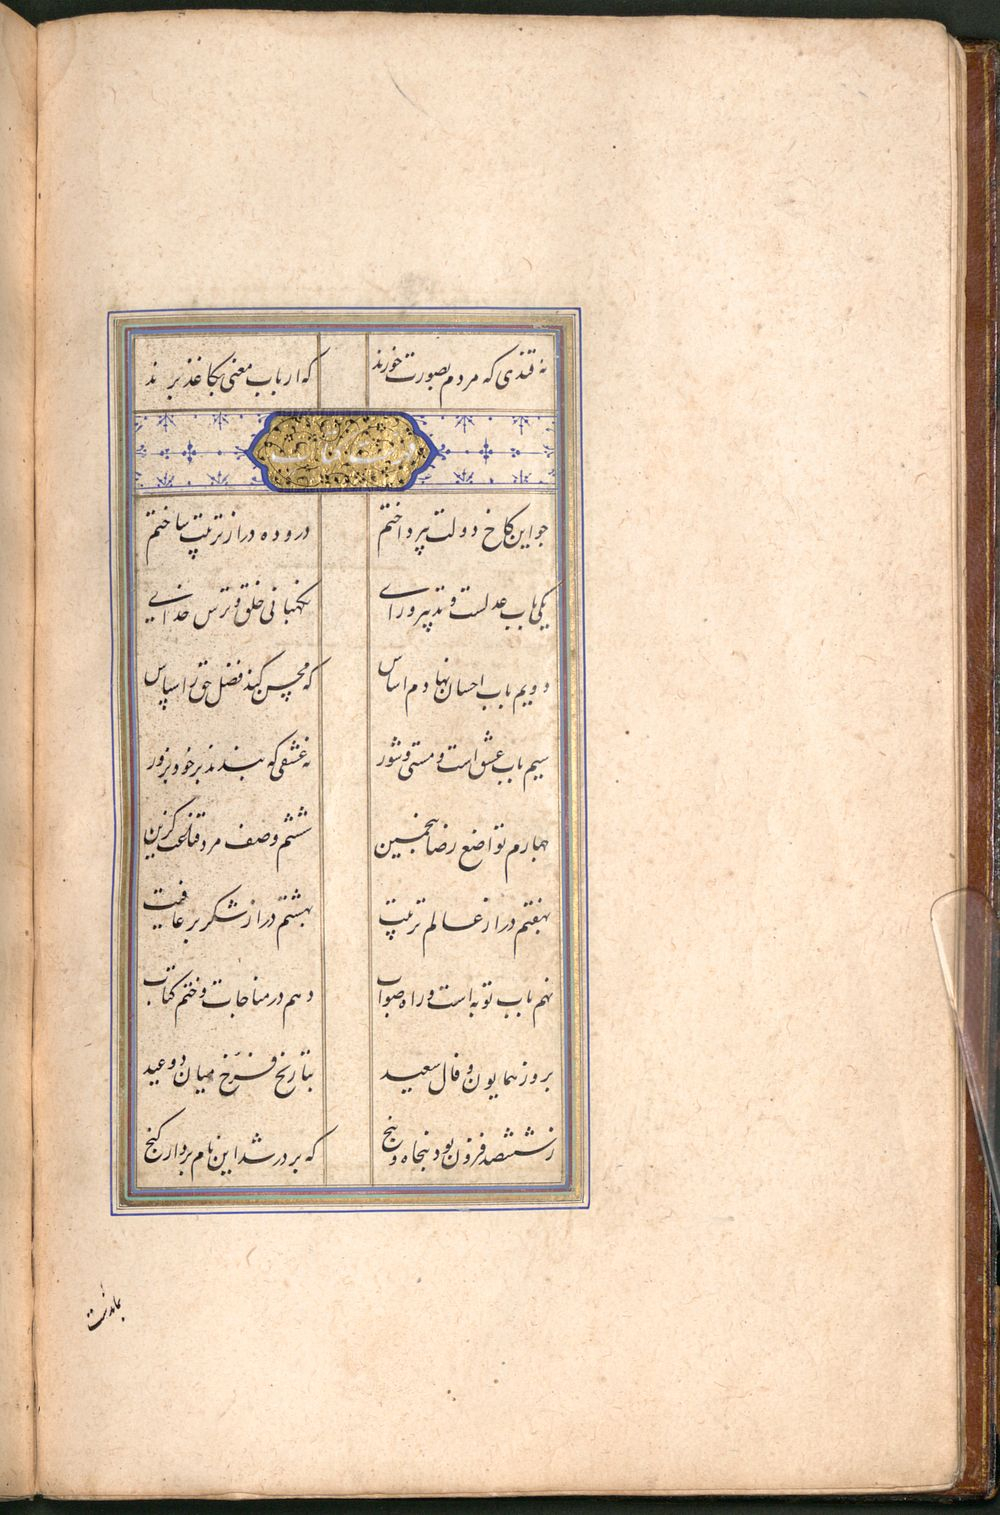 نه قندی که مردم بصورت خورند که ارباب معنی بکاغذ برند
فهرست کتاب
چو این کاخ دولت بپرداختم درو ده دراز تربیت ساختم
یکی باب عدلست و تدبیر و رای نگهبانی خلق و ترس خدای
دویم باب احسان نهادم اساس که محسن کند فضل حق را سپاس
سیم باب عشق است و مستی و شور نه عشقی که بندند بر خود بزور
چهارم تواضع رضا پنجمین ششم وصف مرد قناعت گزین
بهفتم دراز عالم تربیت بهشتم دراز شکر بر عافیت
نهم باب توبه است و راه صواب دهم در مناجات و ختم کتاب
بروز همایون و فال سعید بتاریخ فرخ میان دو عید
ز ششصد فزون بود پنجاه و پنج که پر در شد این نام بردار گنج
بماندست